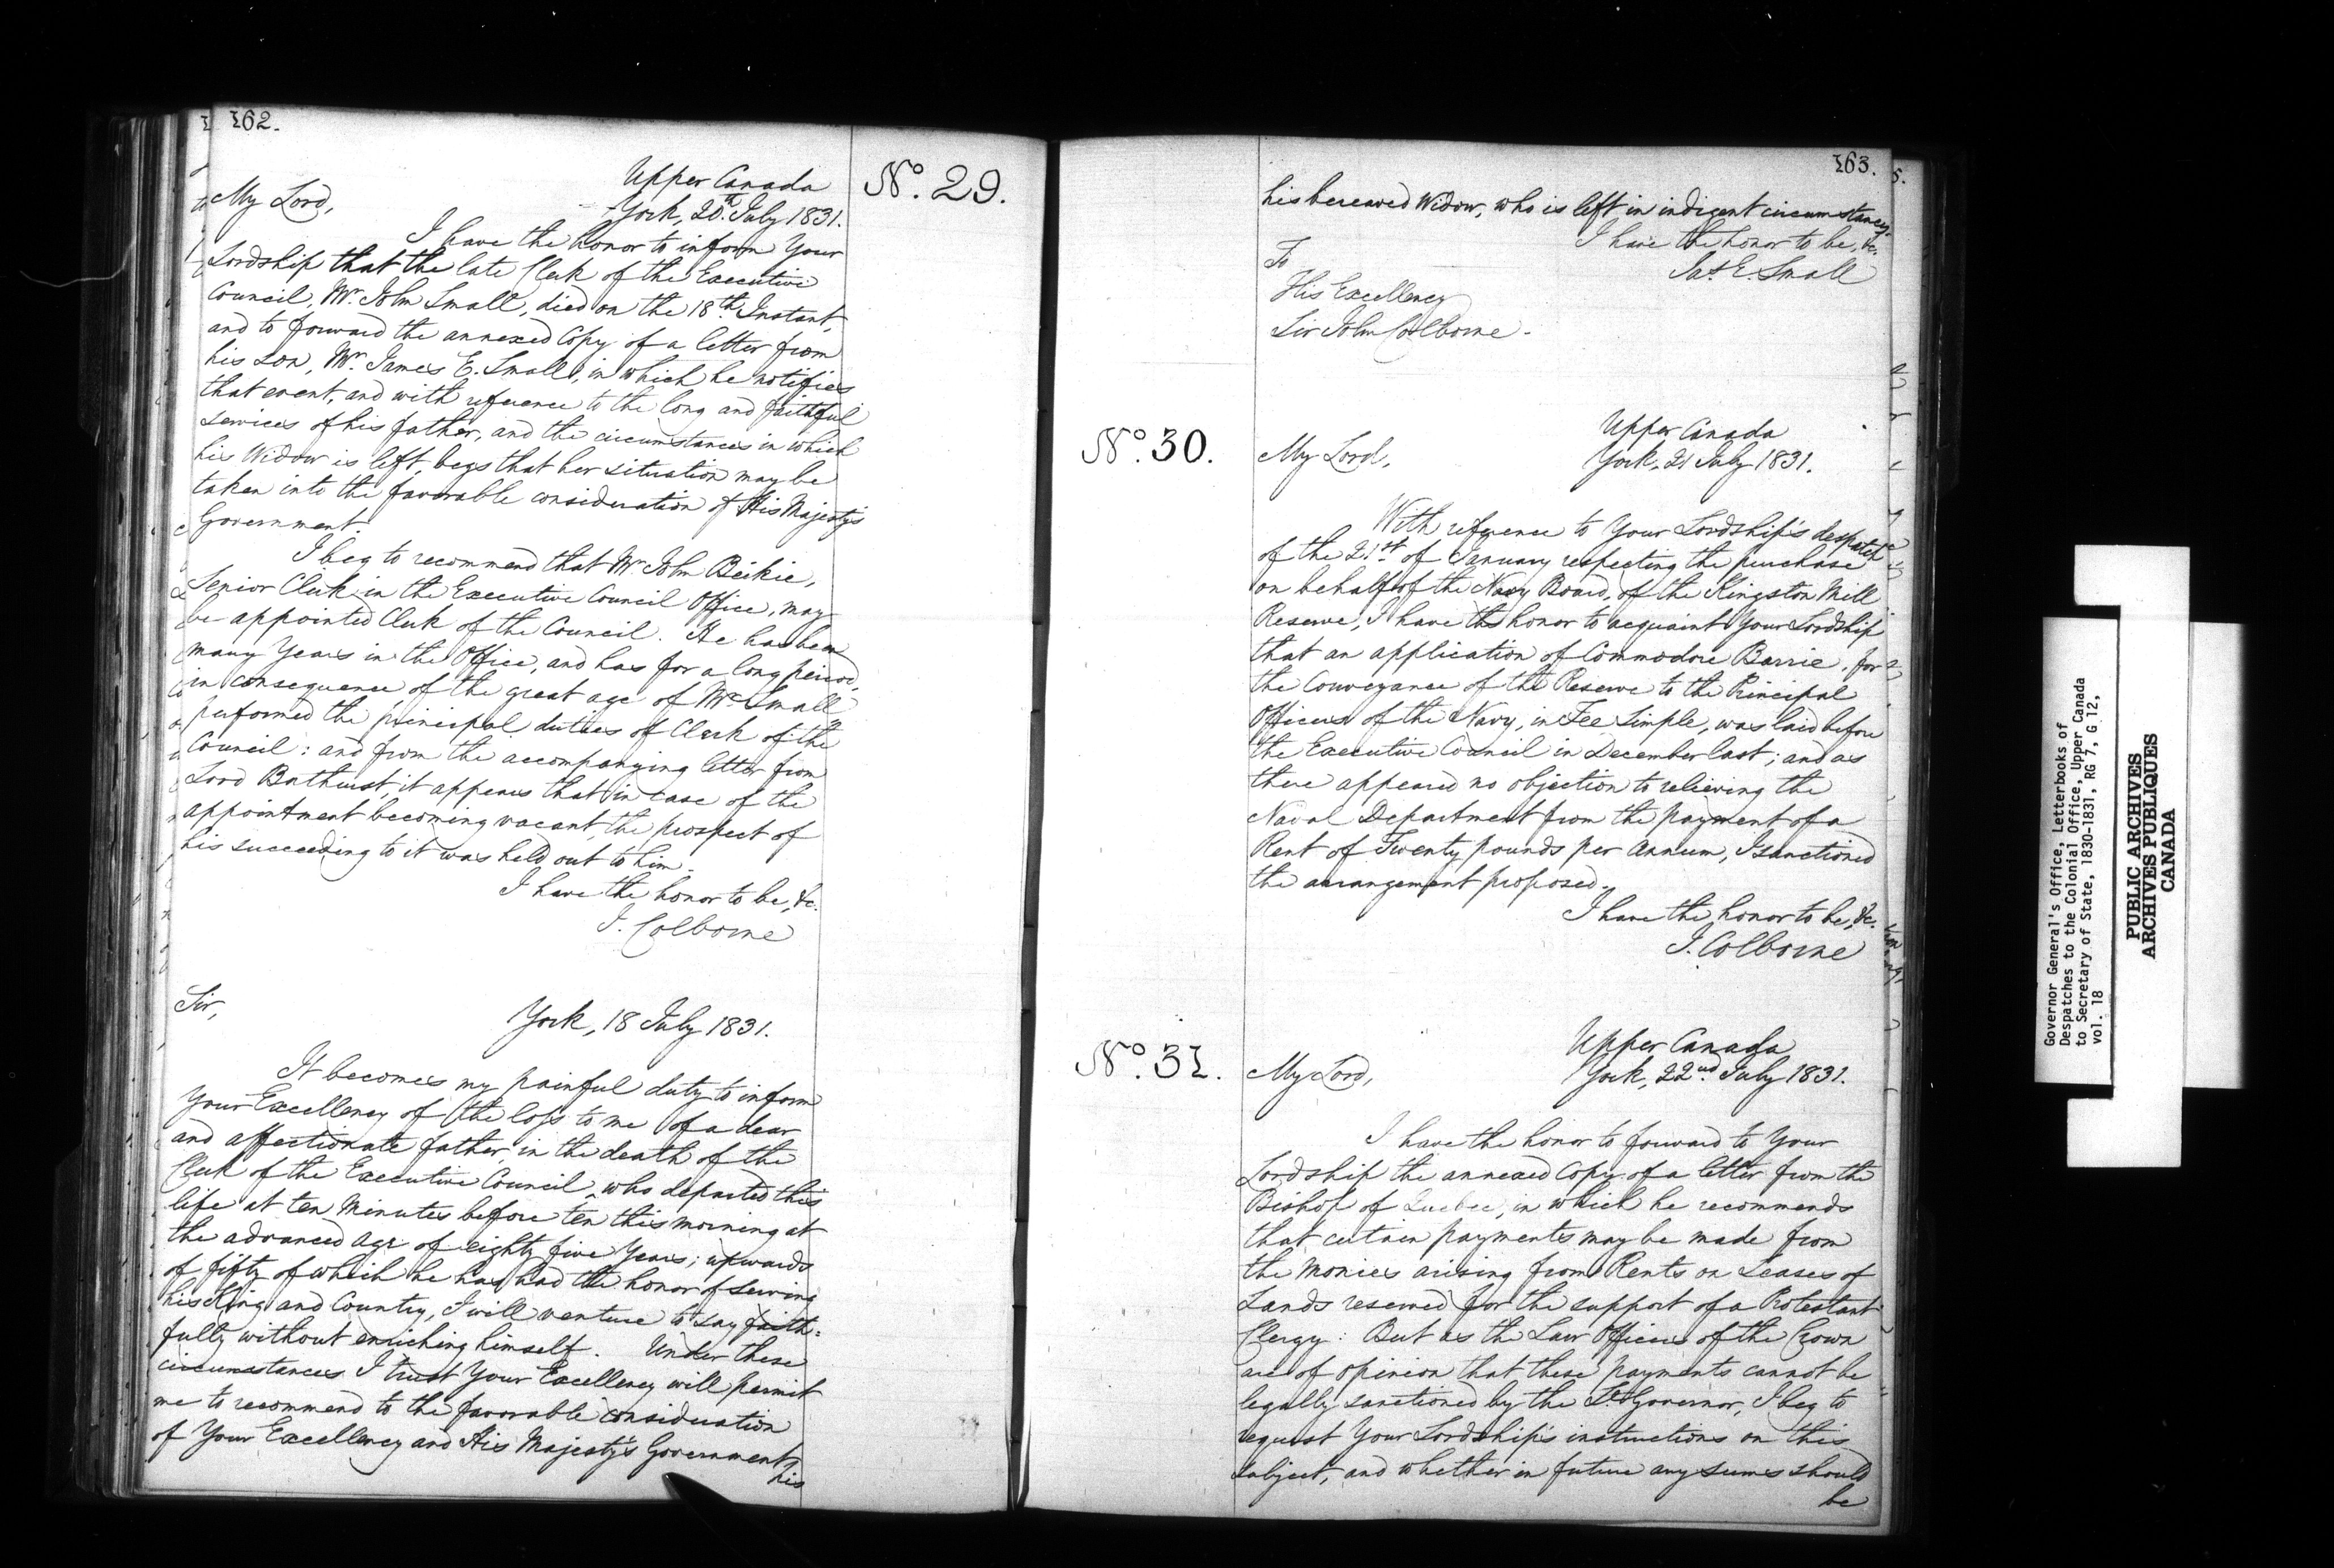 162.
No. 29.
Upper Canada
York, 20th July 1831.
My Lord,
I have the honor to inform Your
Lordship that the late Clerk of the Executive
Council, Mr. John Small, died on the 18th Instant,
and to forward the annexed Copy of a letter from
his son, Mr. James E. Small, in which he notifies
that event, and with reference to the long and faithful
services of his father, and the circumstances in which
his Widow is left, begs that her situation may be
taken into the favorable consideration of His Majesty's
Government.
I beg to recommend that Mr. John Beikie,
Senior Clerk in the Executive Council Office, may
be appointed Clerk of the Council. He has been
many Years in the Office, and has for a long period,
in consequence of the great age of Mr. Small
performed the principal duties of Clerk of the
Council: and from the accompanying letter from
Lord Bathurst, it appears that in case of the
appointment becoming vacant, the prospect of
his succeeding to it was held out to him.
I have the honor to be, &c.
J. Colborne
Sir,
York, 18 July 1831.
It becomes my painful duty to inform
Your Excellency of the loss to me of a dear
and affectionate father in the death of the
Clerk of the Executive Council, who departed this
life at ten Minutes before ten this morning at
the advanced age of eighty five Years; upwards
of fifty of which he has had the honor of serving
his King and Country, I will venture to say faith=
fully without enriching himself. Under these
circumstances I trust Your Excellency will permit
me to recommend to the favorable consideration
of Your Excellency and His Majesty's Government,
his
163.
his bereaved Widow, who is left in indigent circumstances.
I have the honor to be, &c.
Jas. E. Small
To
His Excellency
Sir John Colborne.
No. 30.
Upper Canada
York, 21 July 1831.
My Lord,
With reference to Your Lordship's despatch
of the 21st of January respecting the purchase
on behalf of the Navy Board, of the Kingston Mill
Reserve, I have the honor to acquaint Your Lordship
that an application of Commodore Barrie, for
the Conveyance of the Reserve to the Principal
Officers of the Navy, in Fee Simple, was laid before
the Executive Council in December last; and as
there appeared no objection to relieving the
Naval Department from the payment of a
Rent of Twenty pounds per Annum, I sanctioned
the arrangement proposed.
I have the honor to be, &c.
J. Colborne
No. 31.
Upper Canada
York, 22nd July 1831.
My Lord,
I have the honor to forward to Your
Lordship the annexed Copy of a letter from the
Bishop of Quebec, in which he recommends
that certain payments may be made from
the Monies arising from Rents on Leases of
Lands reserved for the support of a Protestant
Clergy: But as the Law Officers of the Crown
are of opinion that these payments cannot be
legally sanctioned by the Lt. Governor, I beg to
request Your Lordship's instructions on this
subject, and whether in future any sums should
be
Governor General's Office, Letterbooks of
Despatches to the Colonial Office, Upper Canada
to Secretary of State, 1830-1831, RG 7, G 12,
vol. 18
PUBLIC ARCHIVES
ARCHIVES PUBLIQUES
CANADA